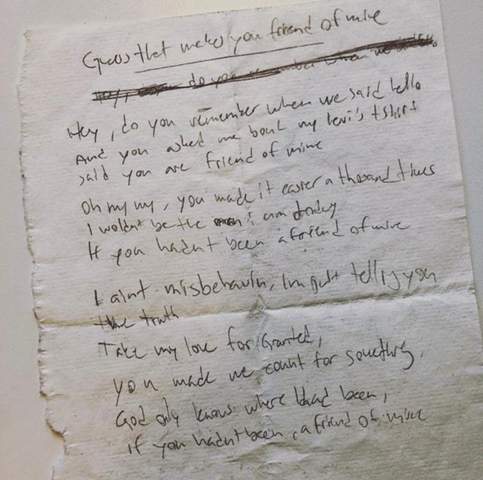 Guess that makes you friend of mine
Hey, do you remember when we said hello
Hey, do you remember when we said hello
And you asked me bout my levi's tshirt
said you are friend of mine
Oh my my, you made it easier a thousand times
I wouldn't be the man i am today
If you hadn't been a friend of mine
I aint misbehavin, Im just telling you
the truth
Take my love for granted,
you made me count for something,
God only knows where I had been,
if you hadn't been, a friend of mine